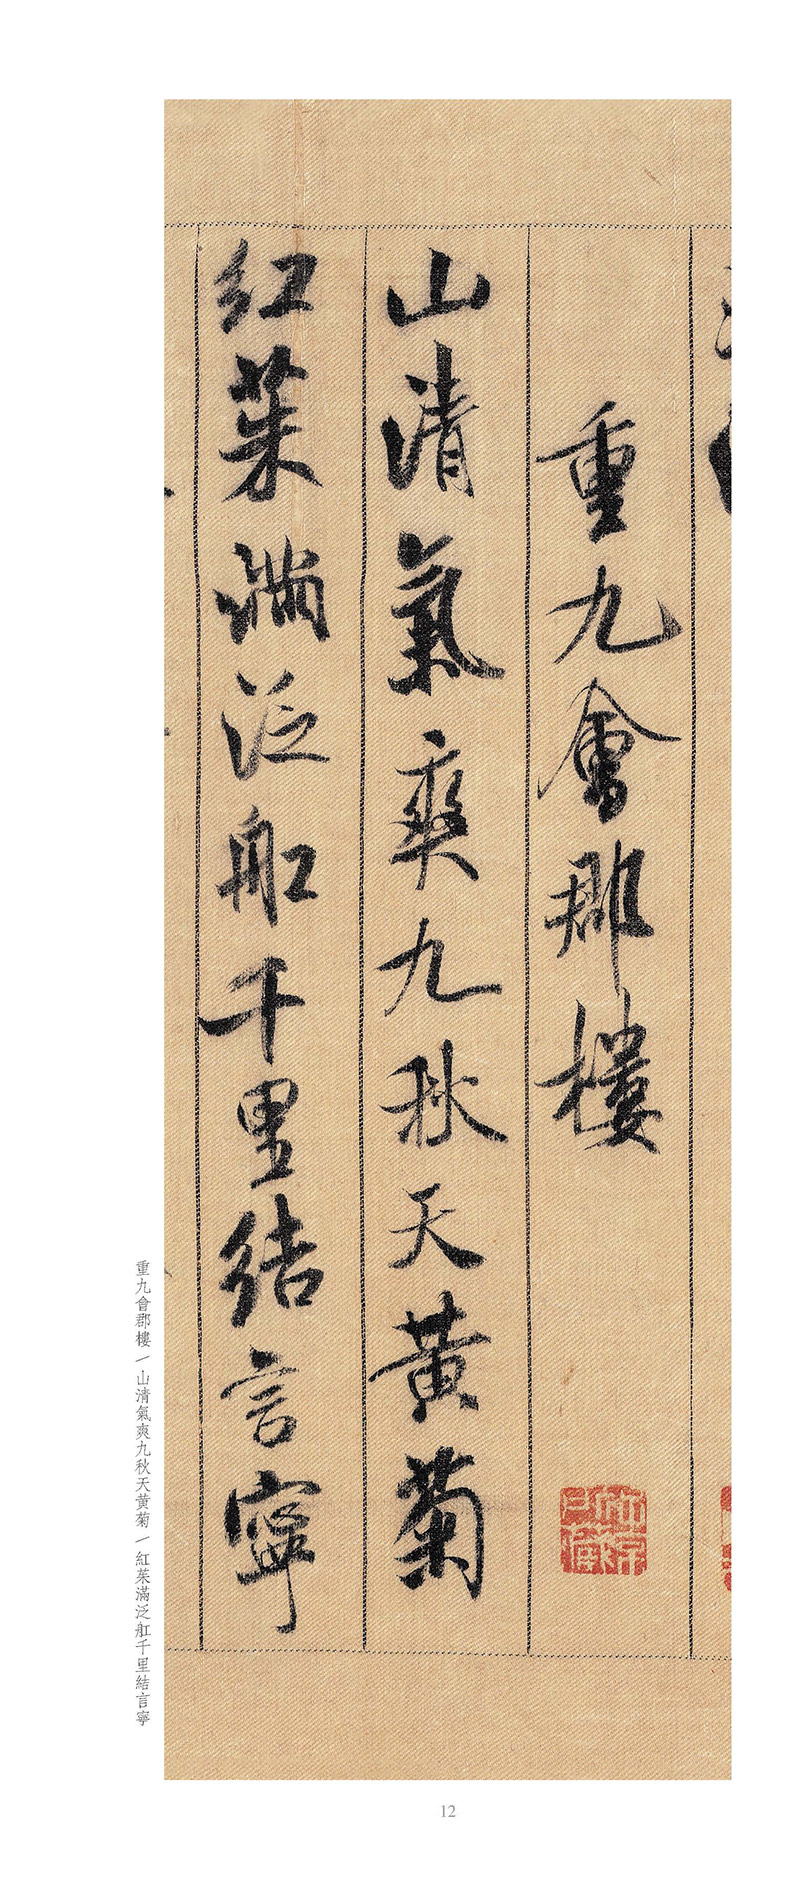 重九會郡樓
山清氣爽九秋天黃菊
紅茱滿泛舡千里結言寧
重九會郡樓／山清氣爽九秋天黃菊／紅茱滿泛舡千里結言寧
12